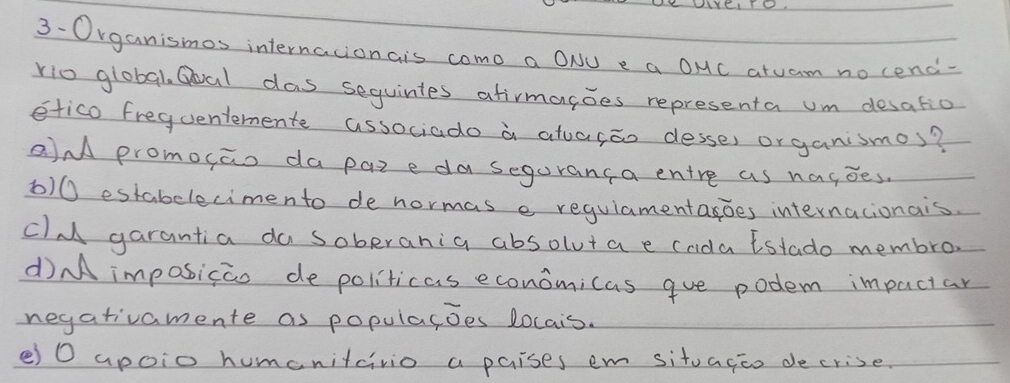 de Direito.
3-Organismos internacionais como a ONU e a OMC atuam no cená-
rio global. Qual das seguintes afirmações representa um desafio
ético frequentemente associado à atuação desses organismos?
a) A promoção da paz e da segurança entre as nações.
b) O estabelecimento de normas e regulamentações internacionais.
c) A garantia da soberania absoluta e cada Estado membro.
d) A imposição de políticas econômicas que podem impactar
negativamente as populações locais.
e) O apoio humanitário a países em situação de crise.